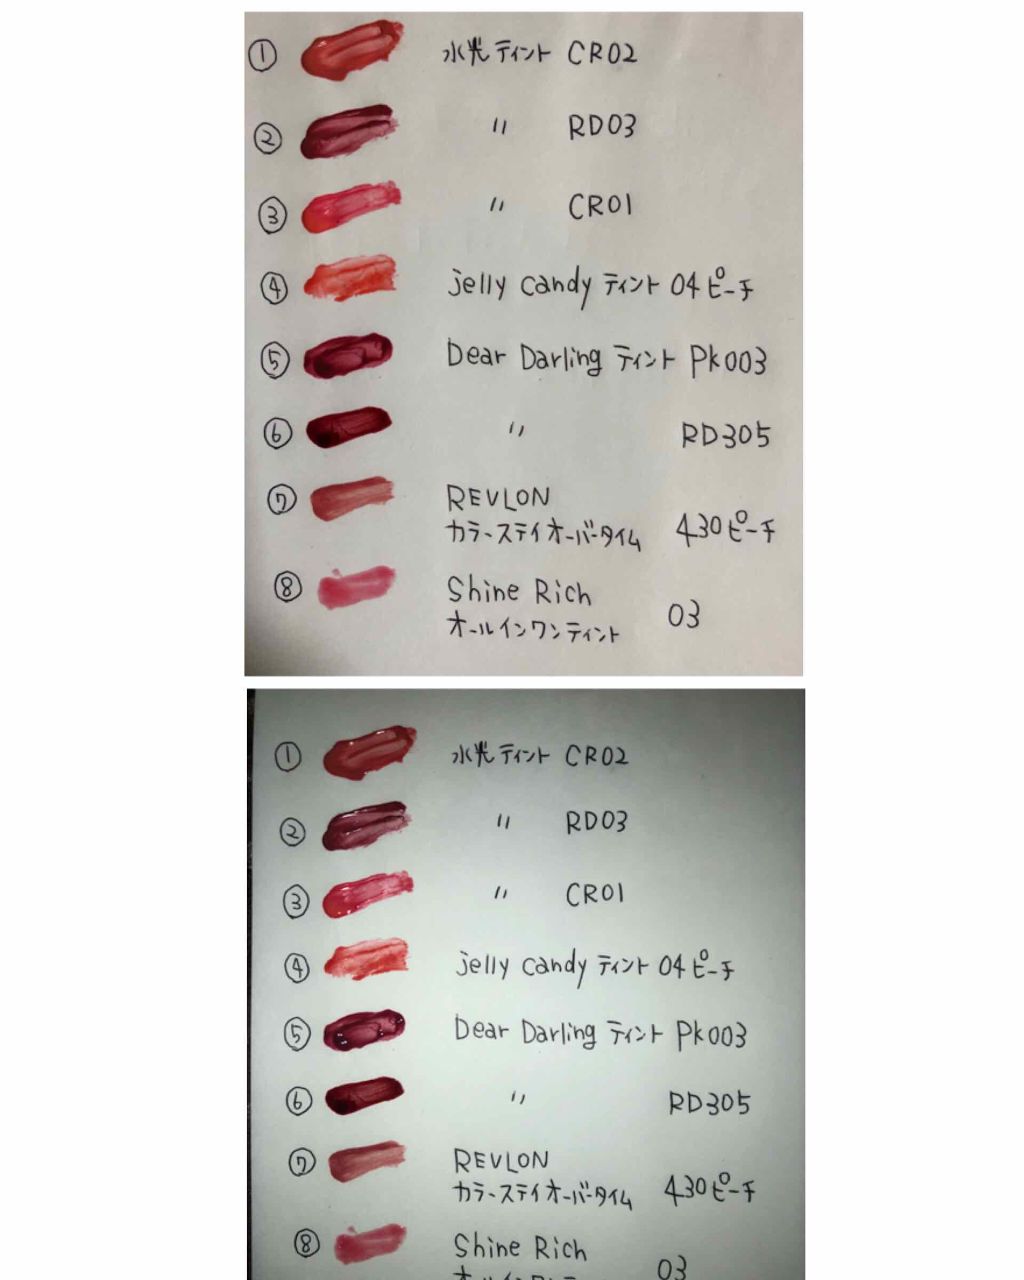 ① 水光ティント CR02
② 〃 RD03
③ 〃 CR01
④ jelly candy ティント 04 ピーチ
⑤ Dear Darling ティント PK003
⑥ 〃 RD305
⑦ REVLON
カラーステイオーバータイム 430 ピーチ
⑧ Shine Rich
オールインワンティント 03
① 水光ティント CR02
② 〃 RD03
③ 〃 CR01
④ jelly candy ティント 04 ピーチ
⑤ Dear Darling ティント PK003
⑥ 〃 RD305
⑦ REVLON
カラーステイオーバータイム 430 ピーチ
⑧ Shine Rich
03